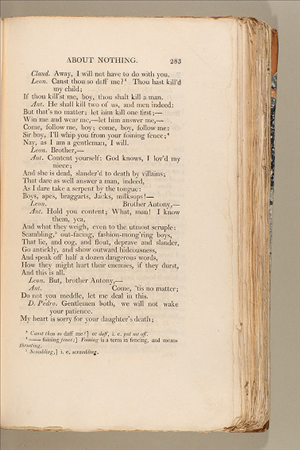 ABOUT NOTHING. 283
Claud. Away, I will not have to do with you.
Leon. Canst thou so daff me?³ Thou hast kill'd
my child;
If thou kill'st me, boy, thou shalt kill a man.
Ant. He shall kill two of us, and men indeed:
But that's no matter; let him kill one first;—
Win me and wear me,—let him answer me,—
Come, follow me, boy; come, boy, follow me:
Sir boy, I'll whip you from your foining fence;⁴
Nay, as I am a gentleman, I will.
Leon. Brother,—
Ant. Content yourself: God knows, I lov'd my
niece;
And she is dead, slander'd to death by villains;
That dare as well answer a man, indeed,
As I dare take a serpent by the tongue:
Boys, apes, braggarts, Jacks, milksops!—
Leon. Brother Antony,—
Ant. Hold you content; What, man! I know
them, yea,
And what they weigh, even to the utmost scruple:
Scambling,⁵ out-facing, fashion-mong'ring boys,
That lie, and cog, and flout, deprave and slander,
Go antickly, and show outward hideousness,
And speak off half a dozen dangerous words,
How they might hurt their enemies, if they durst,
And this is all.
Leon. But, brother Antony,—
Ant. Come, 'tis no matter;
Do not you meddle, let me deal in this.
D. Pedro. Gentlemen both, we will not wake
your patience.
My heart is sorry for your daughter's death;
³ Canst thou so daff me?] to daff, i. e. put me off.
⁴ —— foining fence;] Foining is a term in fencing, and means
thrusting.
⁵ Scambling,] i. e. scrambling.